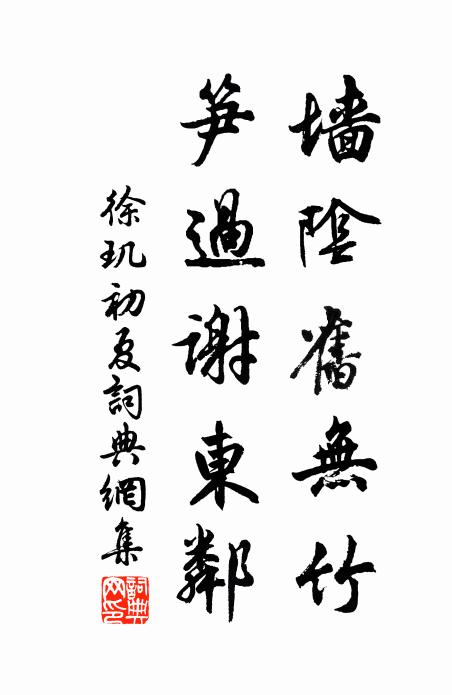 墙陰舊無竹
笋過謝東鄰
徐玑初夏詞典網集
詞典网印